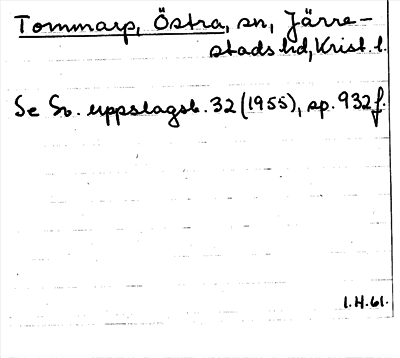 Tommarp, Östra, sn, Järre-
stads hd, Krist. l.
Se Sv. uppslagsb. 32 (1955), sp. 932 f.
1.H.61.